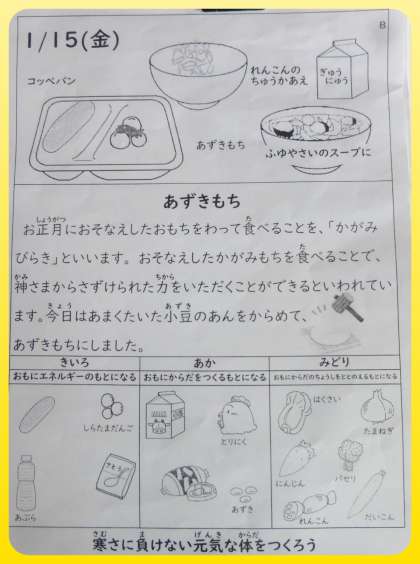 B
1/15(金)
コッペパン
れんこんの
ちゅうかあえ
ぎゅう
にゅう
あずきもち
ふゆやさいのスープに
あずきもち
お正月におそなえしたおもちをわって食べることを、「かがみ
びらき」といいます。おそなえしたかがみもちを食べることで、
神さまからさずけられた力をいただくことができるといわれてい
ます。今日はあまくたいた小豆のあんをからめて、
あずきもちにしました。
きいろ
あか
みどり
おもにエネルギーのもとになる
おもにからだをつくるもとになる
おもにからだのちょうしをととのえるもとになる
しらたまだんご
とりにく
はくさい
たまねぎ
さとう
にんじん
パセリ
あぶら
あずき
れんこん
だいこん
寒さに負けない元気な体をつくろう